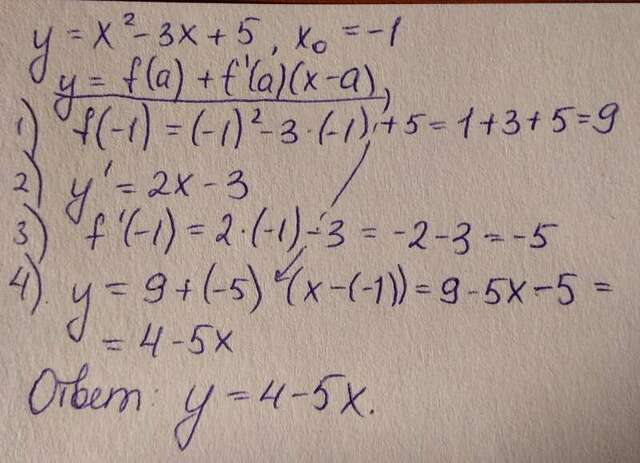 y = x² - 3x + 5 , x₀ = -1
y = f(a) + f'(a)(x-a)
1) f(-1) = (-1)² - 3·(-1) + 5 = 1 + 3 + 5 = 9
2) y' = 2x - 3
3) f'(-1) = 2·(-1) - 3 = -2 - 3 = -5
4). y = 9 + (-5) (x-(-1)) = 9 - 5x - 5 =
= 4 - 5x
Ответ: y = 4 - 5x.